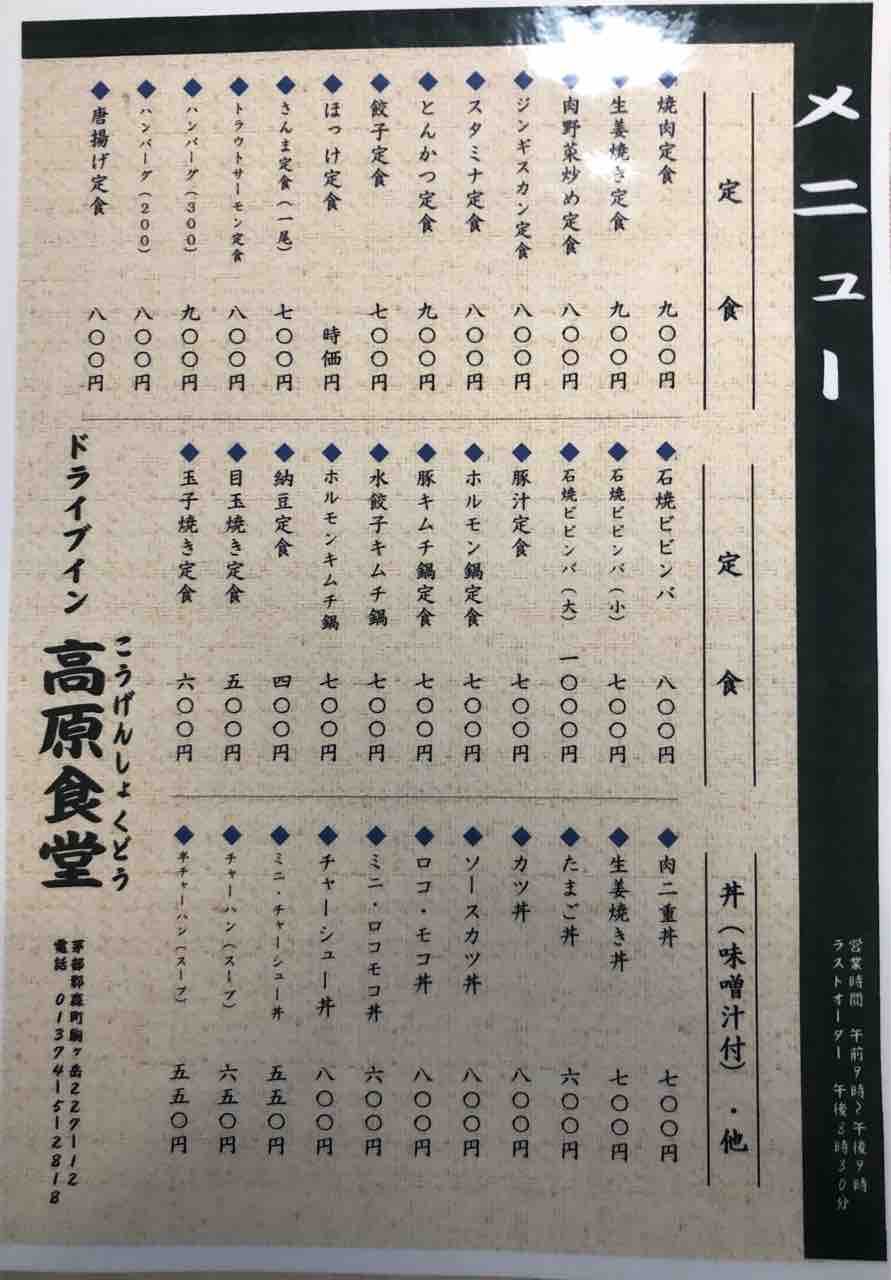 メニュー
営業時間 午前9時～午後9時
ラストオーダー 午後8時30分
定食
◆焼肉定食 九〇〇円
◆生姜焼き定食 九〇〇円
◆肉野菜炒め定食 八〇〇円
◆ジンギスカン定食 八〇〇円
◆スタミナ定食 八〇〇円
◆とんかつ定食 九〇〇円
◆餃子定食 七〇〇円
◆ほっけ定食 時価円
◆さんま定食(一尾) 七〇〇円
◆トラウトサーモン定食 八〇〇円
◆ハンバーグ(300) 九〇〇円
◆ハンバーグ(200) 八〇〇円
◆唐揚げ定食 八〇〇円
定食
◆石焼ビビンバ 八〇〇円
◆石焼ビビンバ(小) 七〇〇円
◆石焼ビビンバ(大) 一〇〇〇円
◆豚汁定食 七〇〇円
◆ホルモン鍋定食 七〇〇円
◆豚キムチ鍋定食 七〇〇円
◆水餃子キムチ鍋 七〇〇円
◆ホルモンキムチ鍋 七〇〇円
◆納豆定食 四〇〇円
◆目玉焼き定食 五〇〇円
◆玉子焼き定食 六〇〇円
丼(味噌汁付)・他
◆肉二重丼 七〇〇円
◆生姜焼き丼 七〇〇円
◆たまご丼 六〇〇円
◆カツ丼 八〇〇円
◆ソースカツ丼 八〇〇円
◆ロコ・モコ丼 八〇〇円
◆ミニ・ロコモコ丼 六〇〇円
◆チャーシュー丼 八〇〇円
◆ミニ・チャーシュー丼 五五〇円
◆チャーハン(スープ) 六五〇円
◆半チャーハン(スープ) 五五〇円
ドライブイン
こうげんしょくどう
高原食堂
茅部郡森町駒ヶ岳227-12
電話 01374-5-2818